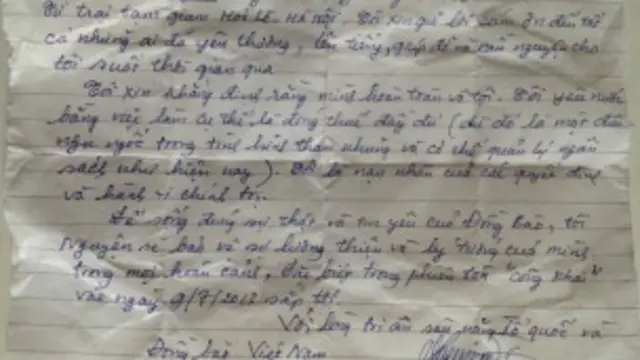 Từ trại tạm giam Hoả Lò - Hà Nội. Tôi xin gửi lời cảm ơn đến tất
cả những ai đã yêu thương, lên tiếng, giúp đỡ và cầu nguyện cho
tôi suốt thời gian qua
Tôi xin khẳng định rằng mình hoàn toàn vô tội. Tôi yêu nước
bằng việc làm cụ thể là đóng thuế đầy đủ (dù đó là một điều
ngu ngốc trong tình hình tham nhũng và cơ chế quản lý ngân
sách như hiện nay). Tôi là nạn nhân của các quyết định
và hành vi chính trị.
Để sống đúng sự thật và tin yêu của Đồng Bào, tôi
nguyện sẽ bảo vệ sự lương thiện và lý tưởng của mình
trong mọi hoàn cảnh, đặc biệt trong phiên toà "công khai"
vào ngày 9/7/2012 sắp tới.
Với lòng tri ân sâu nặng Tổ quốc và
Đồng bào Việt Nam